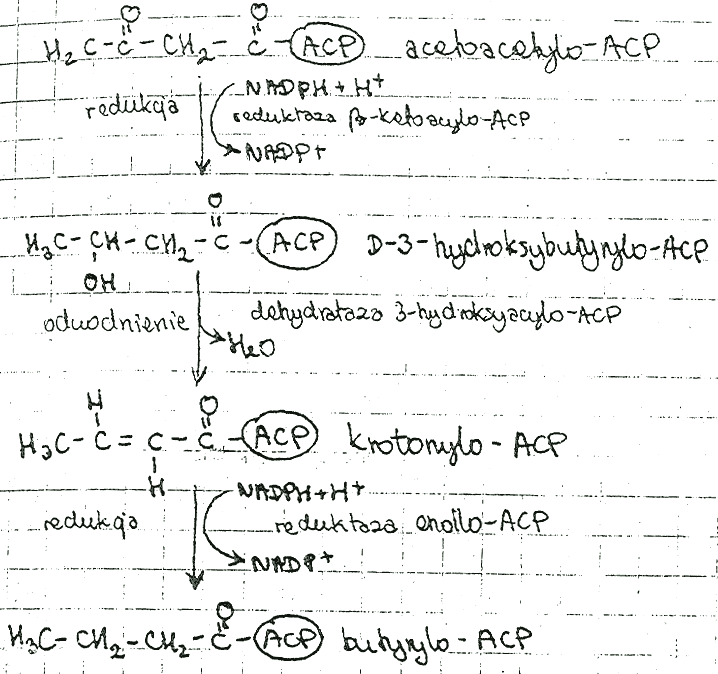 O O
H₂C-C-CH₂-C-ACP acetoacetylo-ACP
redukcja NADPH + H⁺
reduktaza β-ketoacylo-ACP
NADP+
O
H₃C-CH-CH₂-C-ACP D-3-hydroksybutyrylo-ACP
OH
odwodnienie dehydrataza 3-hydroksyacylo-ACP
H₂O
H O
H₃C-C=C-C-ACP krotonylo-ACP
H
NADPH+H⁺
redukcja reduktaza enoilo-ACP
NADP⁺
O
H₃C-CH₂-CH₂-C-ACP butyrylo-ACP